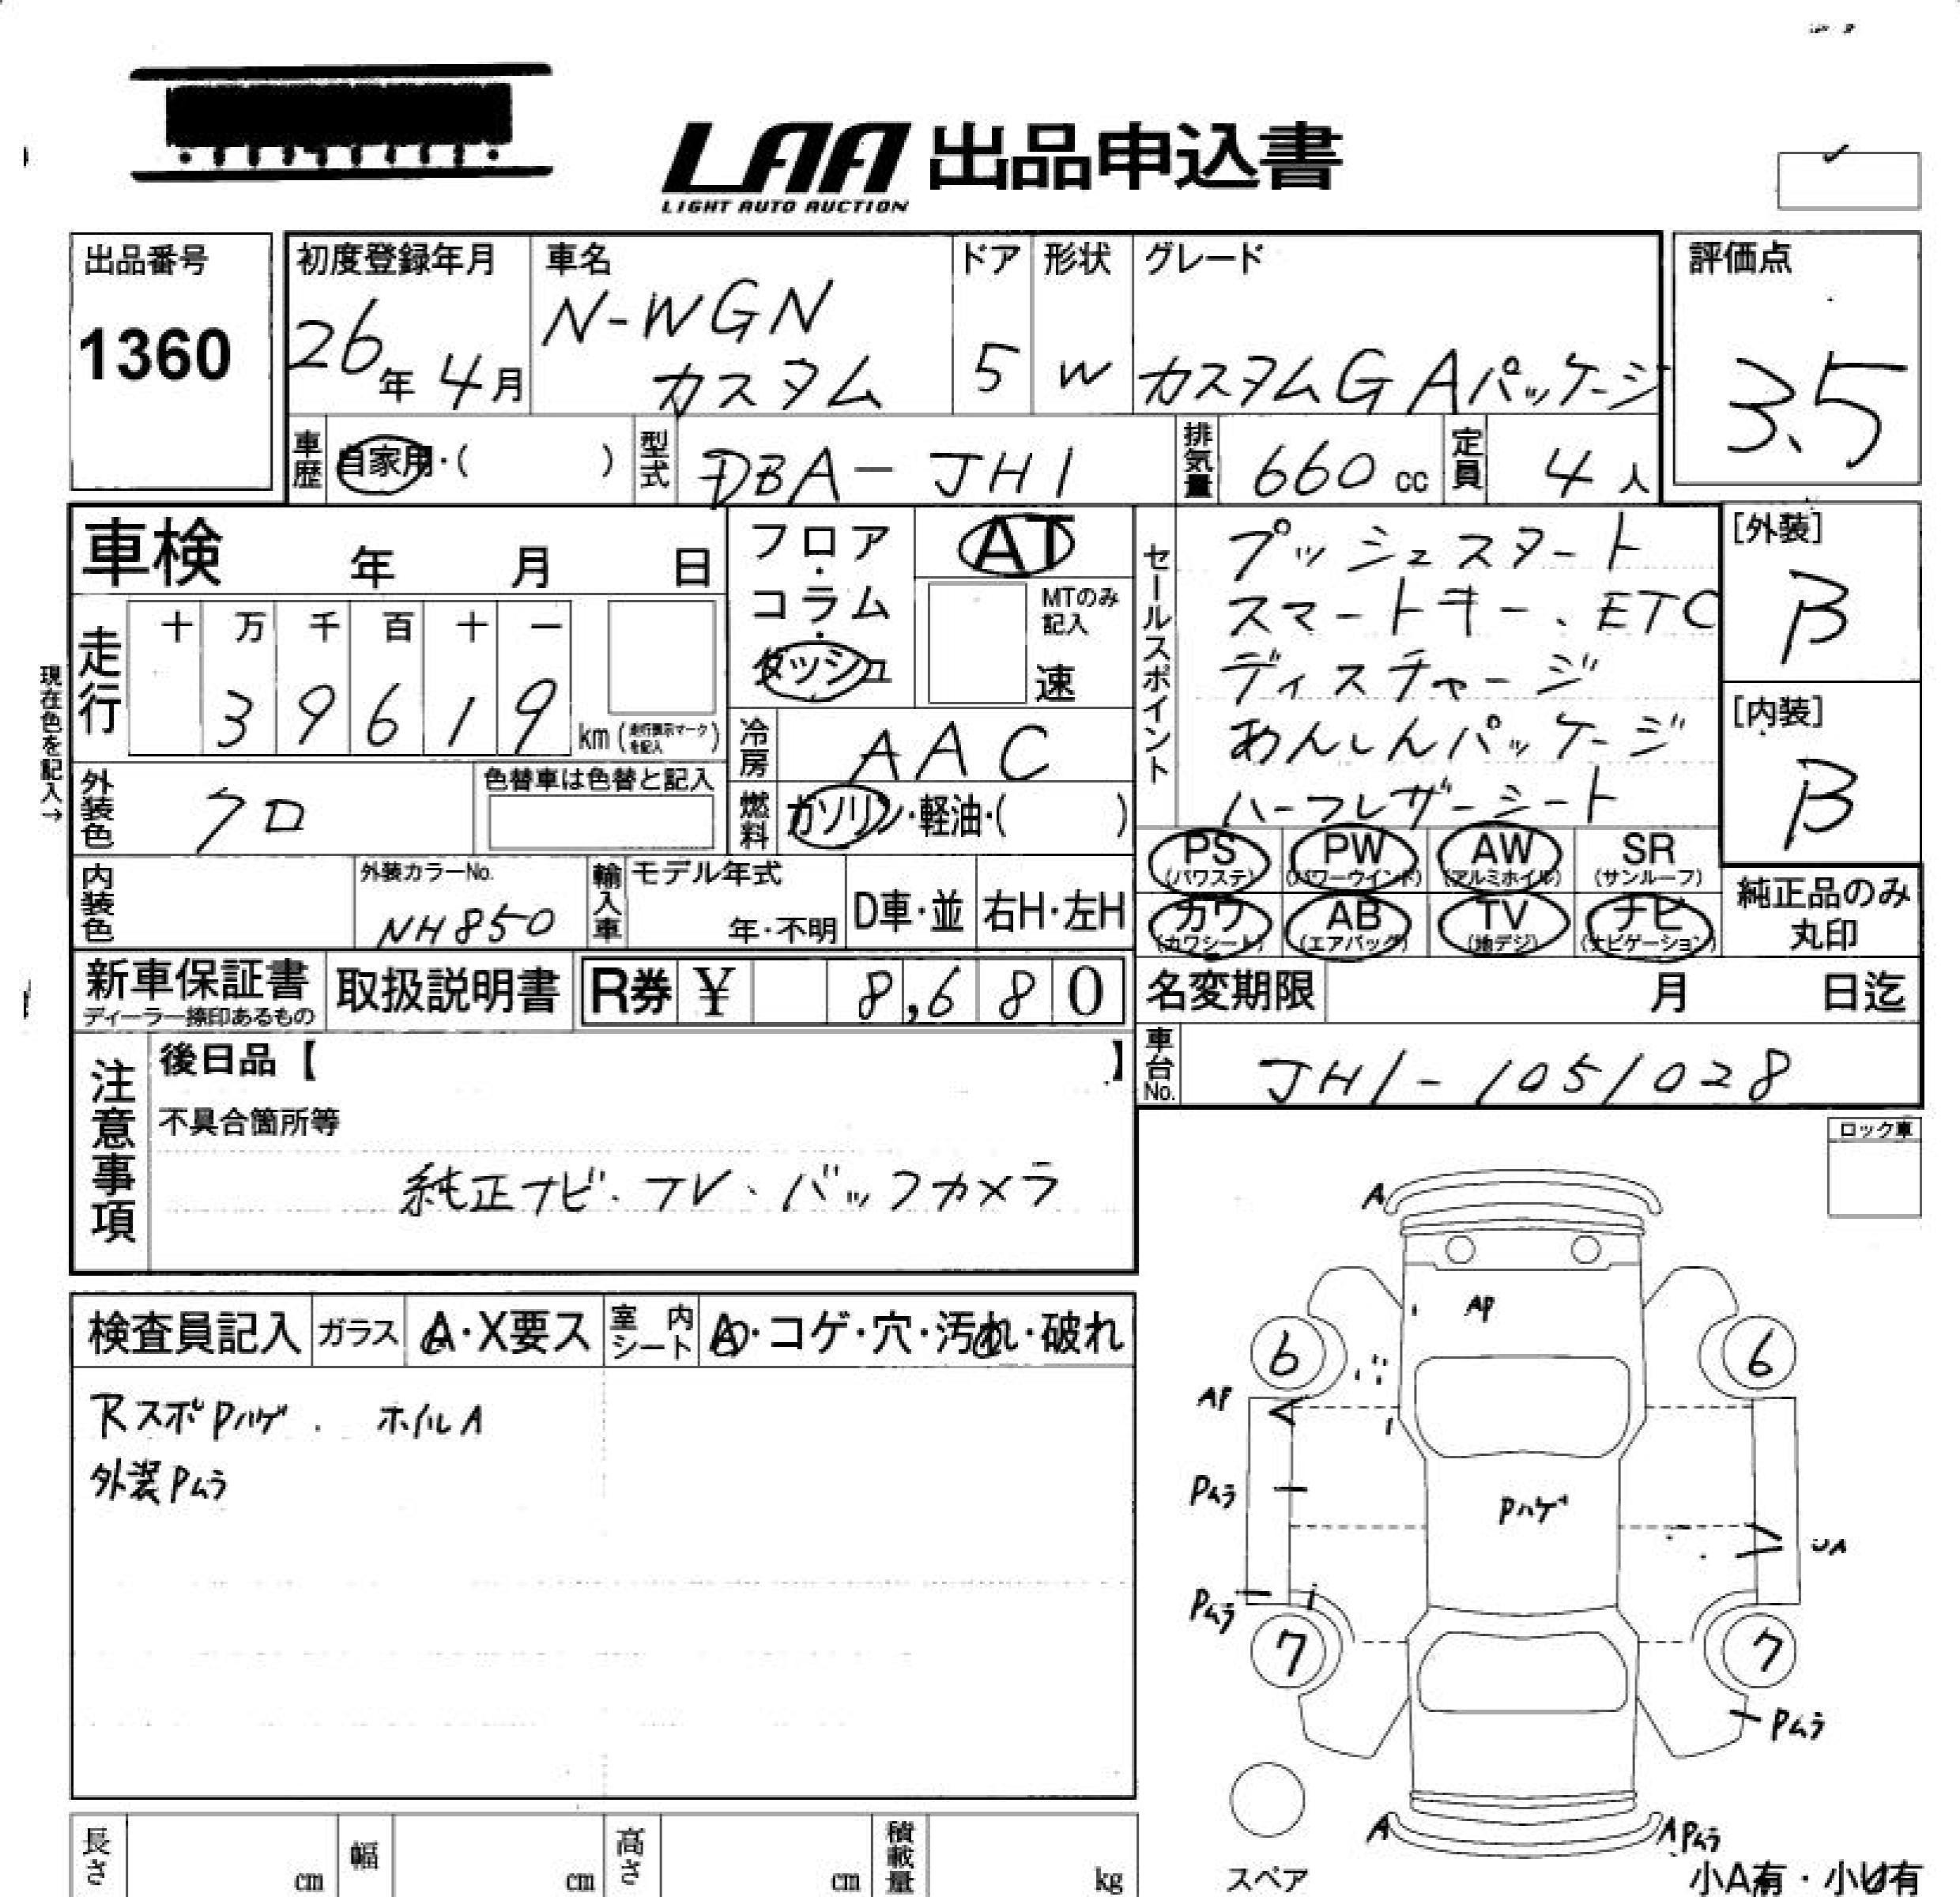 LAA 出品申込書
LIGHT AUTO AUCTION
出品番号
1360
初度登録年月
26年 4月
車名
N-WGN
カスタム
ドア
5
形状
W
グレード
カスタムG Aパッケージ
評価点
3.5
車歴
自家用・( )
型式
DBA-JH1
排気量
660 cc
定員
4 人
車検 年 月 日
現在色を記入→
走行
十 万 千 百 十 一
3 9 6 1 9
km (走行表示マークを記入)
フロア・コラム・ダッシュ
AT
MTのみ
記入
速
冷房
AAC
燃料
ガソリン・軽油・( )
外装色
クロ
色替車は色替と記入
内装色
外装カラーNo.
NH850
輸入車
モデル年式
年・不明
D車・並
右H・左H
セールスポイント
プッシュスタート
スマートキー、ETC
ディスチャージ
あんしんパッケージ
ハーフレザーシート
[外装]
B
[内装]
B
PS
(パワステ)
PW
(パワーウインド)
AW
(アルミホイル)
SR
(サンルーフ)
カワ
(カワシート)
AB
(エアバッグ)
TV
(地デジ)
ナビ
(ナビゲーション)
純正品のみ
丸印
新車保証書
ディーラー捺印あるもの
取扱説明書
R券 ¥ 8,680
名変期限 月 日迄
車台No.
JH1-1051028
注意事項
後日品【 】
不具合箇所等
純正ナビ・TV・バックカメラ
ロック車
検査員記入
ガラス
A・X要ス
室内
シート
A・コゲ・穴・汚れ・破れ
RスポPハゲ. ホイルA
外装Pムラ
A
AP
6
6
AP
Pムラ
Pハゲ
UA
Pムラ
7
7
Pムラ
A
A Pムラ
スペア
小A有・小U有
長さ cm
幅 cm
高さ cm
積載量 kg